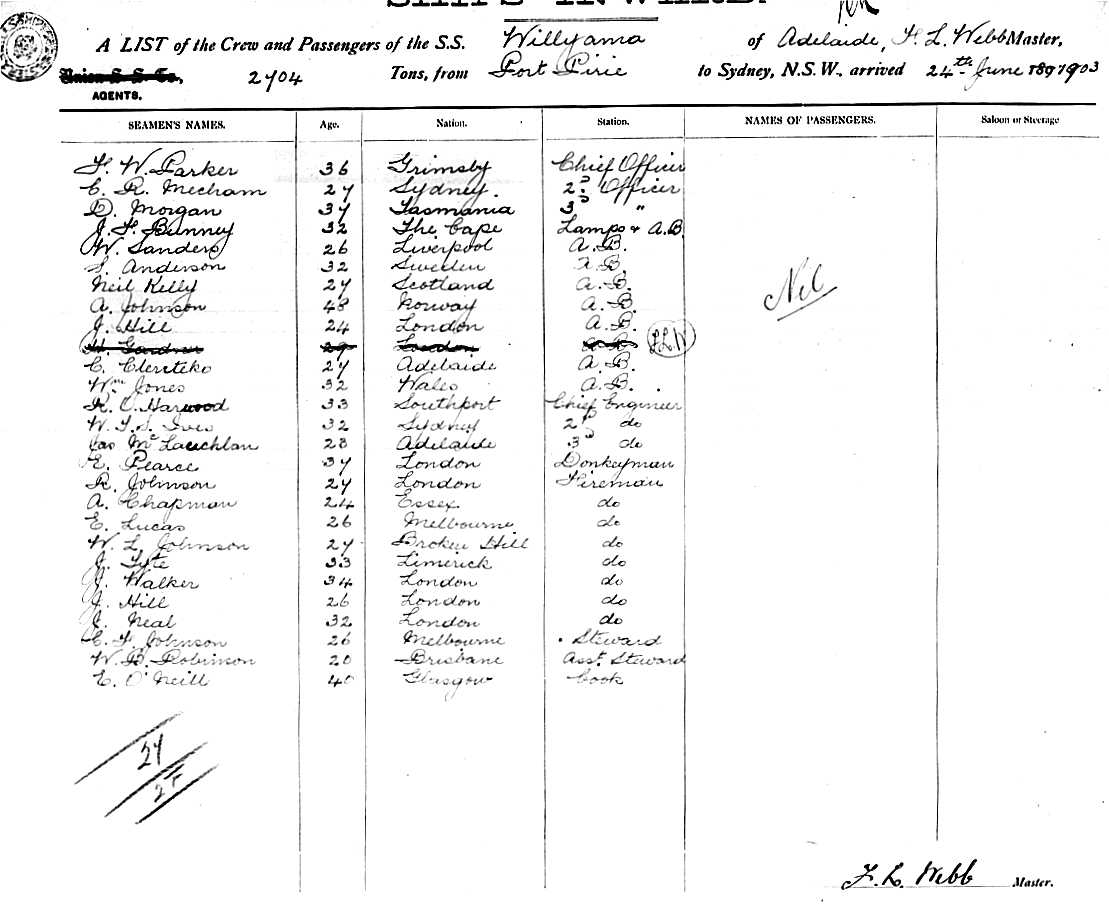 SHIPS INWARD.
A LIST of the Crew and Passengers of the S.S. Willyama of Adelaide, F. L. Webb Master,
Union S. S. Co., 2704 Tons, from Port Pirie to Sydney, N.S.W., arrived 24th June 1903
AGENTS.
SEAMEN'S NAMES. Age. Nation. Station. NAMES OF PASSENGERS. Saloon or Steerage
F. W. Parker 36 Grimsby Chief Officer
C. R. Mecham 27 Sydney. 2d Officer
D. Morgan 37 Tasmania 3d "
J. F. Bunney 32 The Cape Lamps & A.B.
W. Sanders 26 Liverpool A.B.
S. Anderson 32 Sweden A.B.
Neil Kelly 27 Scotland A.B.
Nil
A. Johnson 48 Norway A.B.
J. Hill 24 London A.B.
H. Gardner 29 London A.B. F.L.W
C. 27 Adelaide A.B.
Wm Jones 32 Wales A.B.
R. C. Harwood 33 Southport Chief Engineer
W. T. S. Ives 32 Sydney 2d do
Jas McLauchlan 28 Adelaide 3d do
E. Pearce 37 London Donkeyman
R. Johnson 27 London Fireman
A. Chapman 24 Essex do
E. Lucas 26 Melbourne do
W. L. Johnson 27 Broken Hill do
J. Tyte 33 Limerick do
J. Walker 34 London do
J. Hill 26 London do
J. Neal 32 London do
C. F. Johnson 26 Melbourne Steward
W. B. Robinson 20 Brisbane Asst. Steward
E. O'Neill 40 Glasgow Cook
27
F. L. Webb Master.